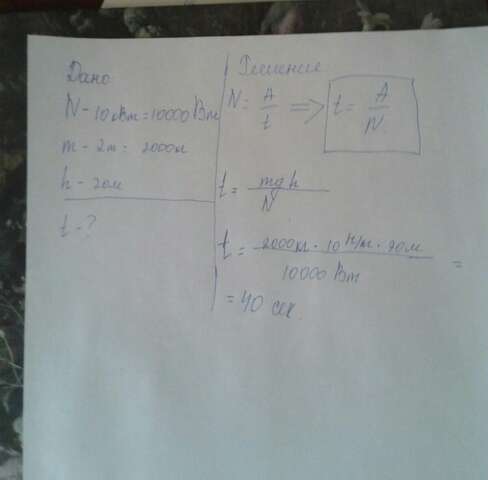 Дано
N - 10 кВт = 10000 Вт
m - 2т = 2000кг
h - 20м
t - ?
Решение
N = A / t => t = A / N
t = mgh / N
t = 2000кг · 10 Н/кг · 20м / 10000 Вт =
= 40 сек.